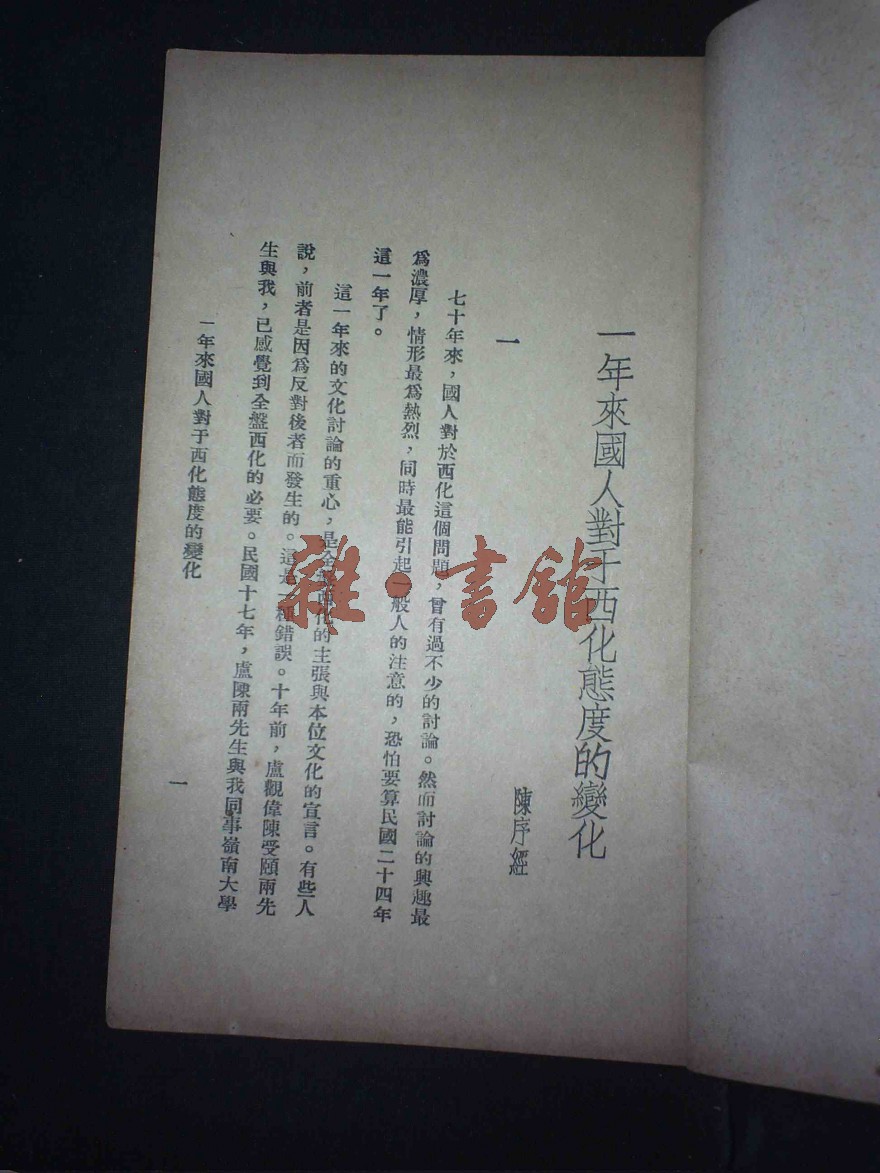 一年來國人對于西化態度的變化
陳序經
一
七十年來，國人對於西化這個問題，曾有過不少的討論。然而討論的興趣最
爲濃厚，情形最爲熱烈，同時最能引起一般人的注意的，恐怕要算民國二十四年
這一年了。
這一年來的文化討論的重心，是全盤西化的主張與本位文化的宣言。有些人
說，前者是因爲反對後者而發生的。這是一種錯誤。十年前，盧觀偉陳受頤兩先
生與我，已感覺到全盤西化的必要。民國十七年，盧陳兩先生與我同事嶺南大學
一年來國人對于西化態度的變化
一
雜·書館